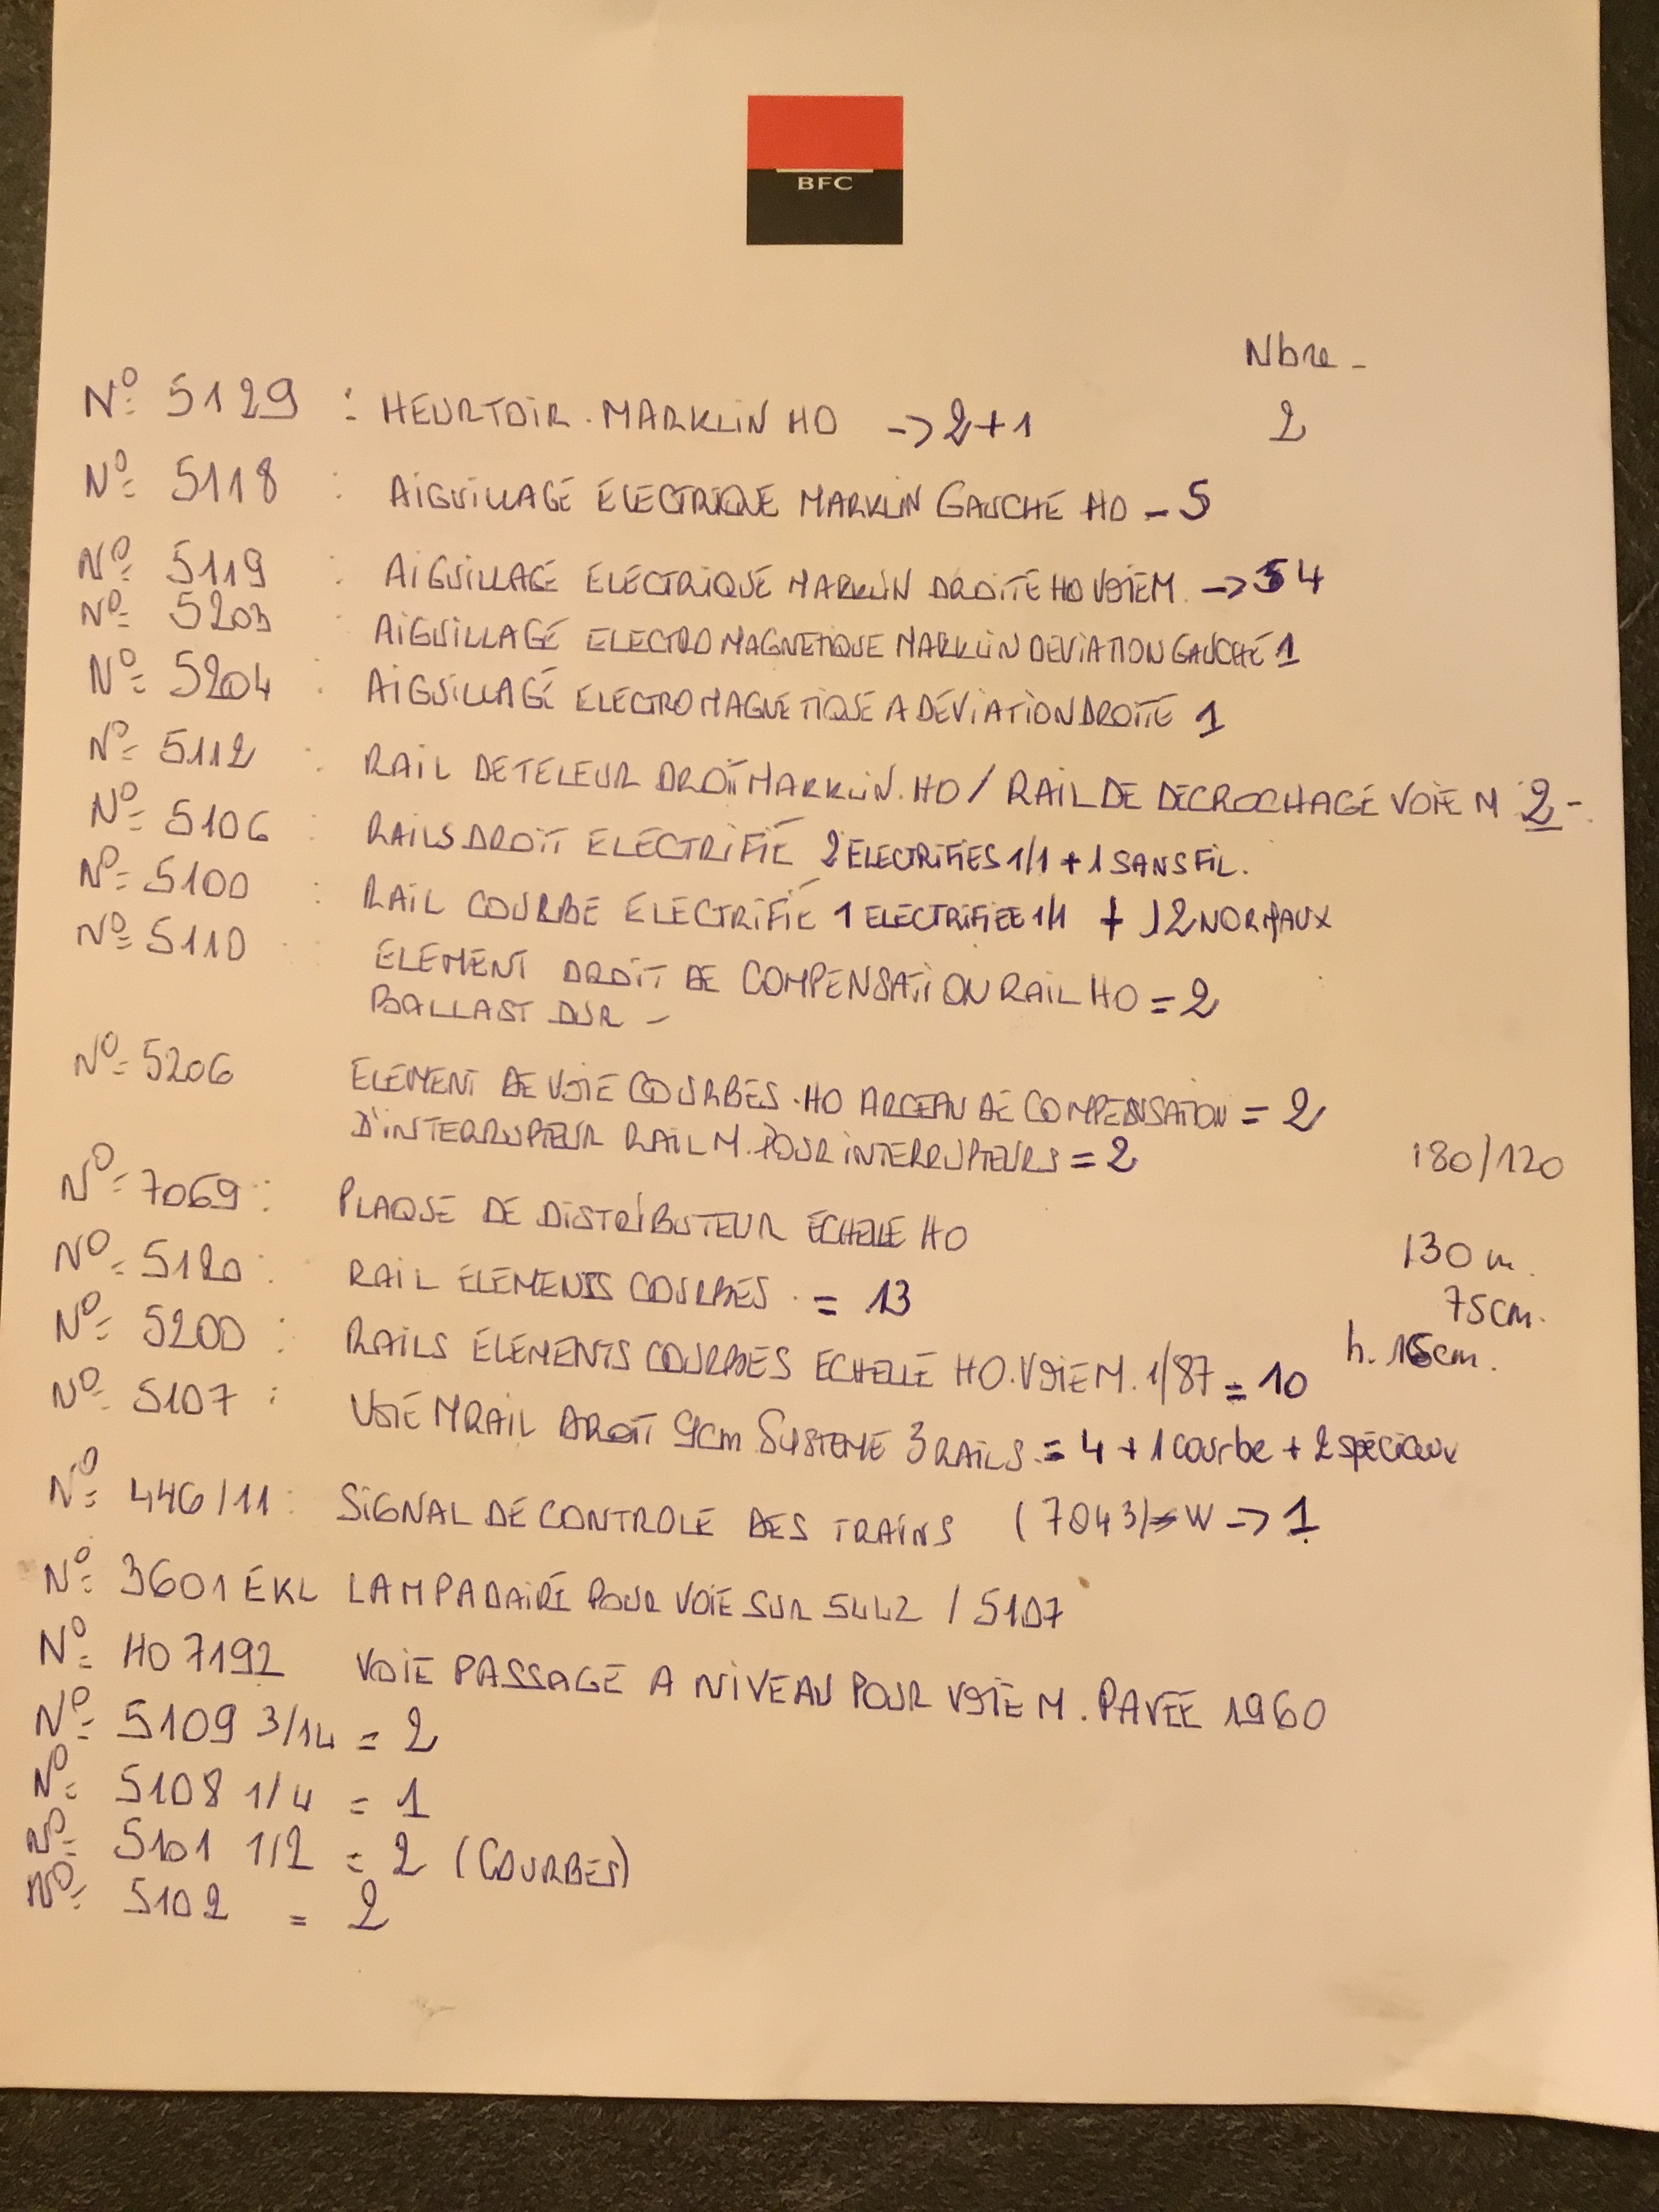 BFC
Nbre -
N° 5129 : HEURTOIR. MARKLIN HO -> 2+1 2
N° 5118 : AIGUILLAGE ELECTRIQUE MARKLIN GAUCHE HO - 5
N° 5119 : AIGUILLAGE ELECTRIQUE MARKLIN DROITE HO VOIE M. -> 4
N° 5203 : AIGUILLAGE ELECTROMAGNETIQUE MARKLIN DEVIATION GAUCHE 1
N° 5204 : AIGUILLAGE ELECTROMAGNETIQUE A DEVIATION DROITE 1
N° 5112 : RAIL DETELEUR DROIT MARKLIN. HO / RAIL DE DECROCHAGE VOIE M 2 -
N° 5106 : RAILS DROIT ELECTRIFIÉ 2 ELECTRIFIES 1/1 + 1 SANS FIL.
N° 5100 : RAIL COURBE ELECTRIFIÉ 1 ELECTRIFIEE 1/1 + 12 NORMAUX
N° 5110 ELEMENT DROIT DE COMPENSATION RAIL HO = 2
BALLAST DUR -
N° 5206 ELEMENT DE VOIE COURBES. HO ARCEAU DE COMPENSATION = 2
D'INTERRUPTEUR RAIL M. POUR INTERRUPTEURS = 2
180/120
N° 7069 : PLAQUE DE DISTRIBUTEUR ECHELLE HO
130 m.
N° 5120 : RAIL ELEMENTS COURBES = 13
75cm.
N° 5200 : RAILS ELEMENTS COURBES ECHELLE HO. VOIE M. 1/87 = 10
h. 16cm.
N° 5107 : VOIE M RAIL DROIT 9cm SYSTEME 3 RAILS = 4 + 1 courbe + 2 spéciaux
N° 446/11 : SIGNAL DE CONTROLE DES TRAINS (7043) W -> 1
N° 3601 EKL LAMPADAIRE POUR VOIE SUR 5442 / 5107
N° HO 7192 VOIE PASSAGE A NIVEAU POUR VOIE M. PAVEE 1960
N° 5109 3/14 = 2
N° 5108 1/4 = 1
N° 5101 1/2 = 2 (COURBES)
N° 5102 = 2